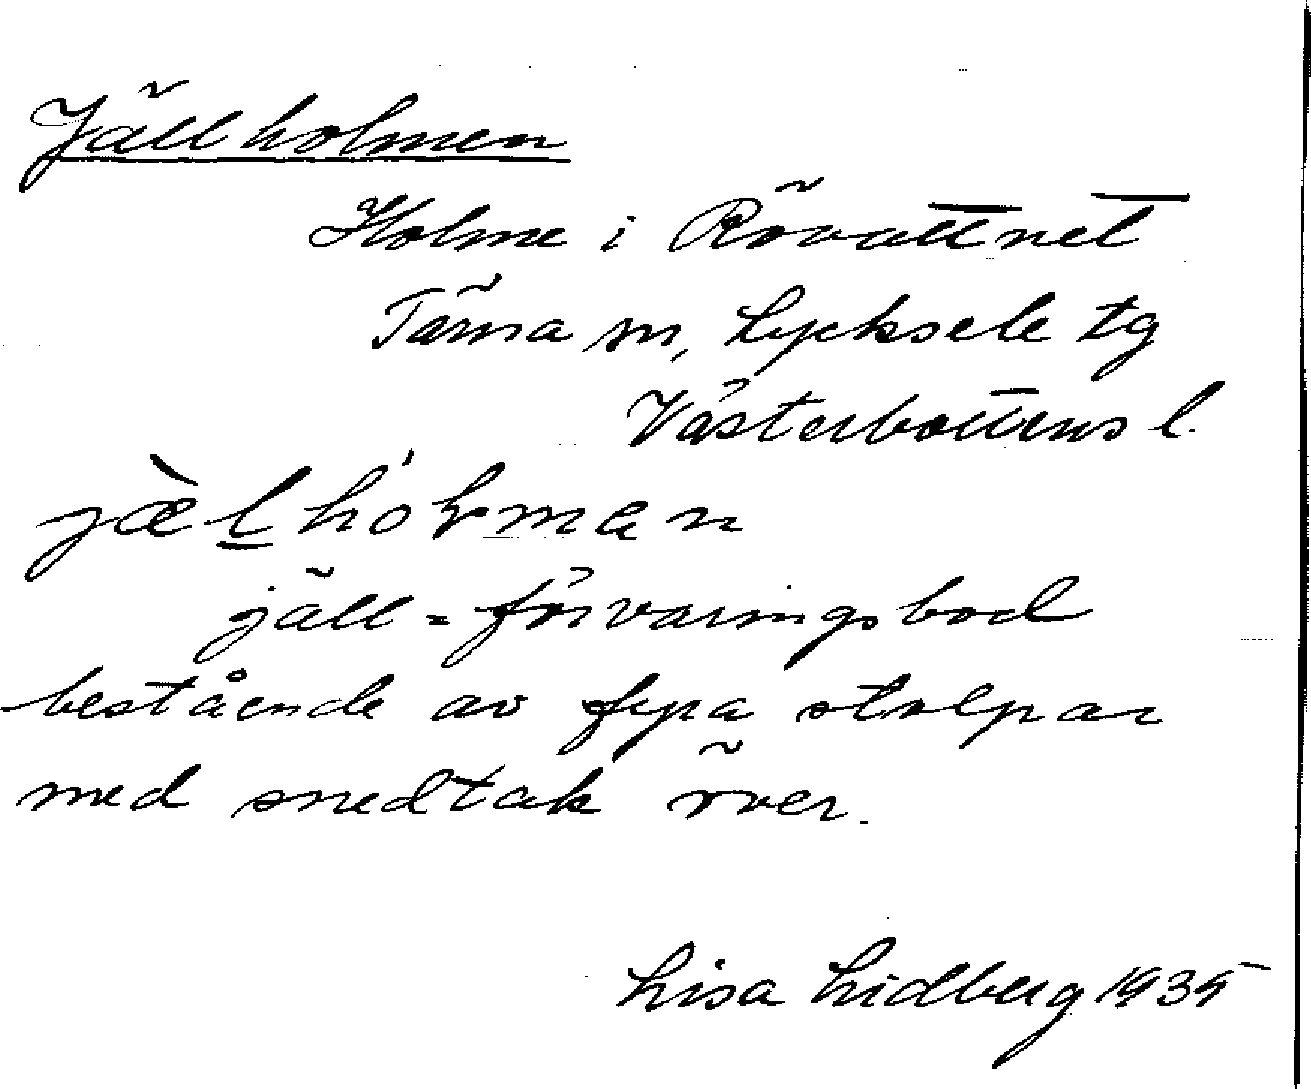 Jällholmen
Holme i Rövattnet
Tärna sn, Lycksele tg
Västerbottens l.
jæ̀lhólmen
jäll = förvaringsbod
bestående av fyra stolpar
med snedtak över.
Lisa Lidberg 1935